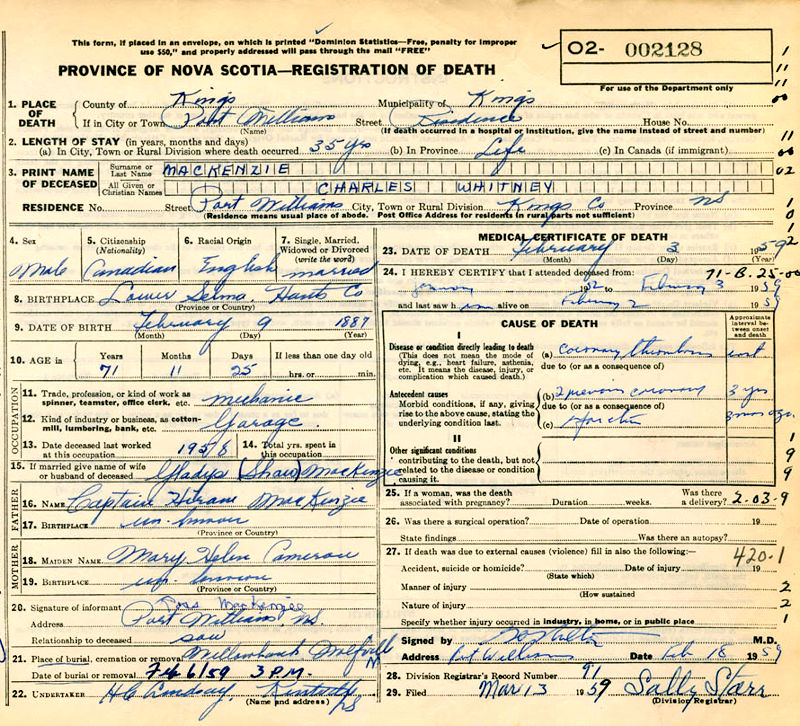 This form, if placed in an envelope, on which is printed "Dominion Statistics—Free, penalty for improper
use $50," and properly addressed will pass through the mail "FREE"
O2- 002128
For use of the Department only
PROVINCE OF NOVA SCOTIA—REGISTRATION OF DEATH
1. PLACE OF DEATH County of Kings Municipality of Kings
If in City or Town Port Williams Street Residence House No.
(Name) (If death occurred in a hospital or institution, give the name instead of street and number)
2. LENGTH OF STAY (in years, months and days)
(a) In City, Town or Rural Division where death occurred 35 yrs (b) In Province Life (c) In Canada (if immigrant)
3. PRINT NAME OF DECEASED Surname or Last Name MACKENZIE
All Given or Christian Names CHARLES WHITNEY
RESIDENCE No. Street Port Williams City, Town or Rural Division Kings Co Province NS
(Residence means usual place of abode. Post Office Address for residents in rural parts not sufficient)
4. Sex 5. Citizenship (Nationality) 6. Racial Origin 7. Single, Married, Widowed or Divorced (write the word)
Male Canadian English married
8. BIRTHPLACE Lower Selma, Hants Co
(Province or Country)
9. DATE OF BIRTH February 9 1887
(Month) (Day) (Year)
10. AGE in Years Months Days If less than one day old
71 11 25 hrs. or min.
OCCUPATION
11. Trade, profession, or kind of work as spinner, teamster, office clerk, etc. mechanic
12. Kind of industry or business, as cotton-mill, lumbering, bank, etc. Garage.
13. Date deceased last worked at this occupation 1958 14. Total yrs. spent in this occupation
15. If married give name of wife or husband of deceased Gladys (Shaw) MacKenzie
FATHER
16. NAME Captain Hiram MacKenzie
17. BIRTHPLACE unknown
(Province or Country)
MOTHER
18. MAIDEN NAME Mary Helen Cameron
19. BIRTHPLACE unknown
(Province or Country)
20. Signature of informant MacKenzie
Address Port Williams, NS.
Relationship to deceased son
21. Place of burial, cremation or removal Willowbank Wolfville
Date of burial or removal Feb 6/59 3 P.M.
22. UNDERTAKER H C Lindsay, Kentville NS
(Name and address)
MEDICAL CERTIFICATE OF DEATH
23. DATE OF DEATH February 3 1959
(Month) (Day) (Year)
24. I HEREBY CERTIFY that I attended deceased from: 71-B.25-00
January 1952 to February 3 1959
and last saw him alive on February 2 1959
CAUSE OF DEATH
Approximate interval between onset and death
I
Disease or condition directly leading to death (a) coronary thrombosis
(This does not mean the mode of dying, e.g., heart failure, asthenia, etc. It means the disease, injury, or complication which caused death.)
due to (or as a consequence of)
Antecedent causes (b) 2 previous coronary 3 yrs
Morbid conditions, if any, giving rise to the above cause, stating the underlying condition last.
due to (or as a consequence of)
(c)
II
Other significant conditions
contributing to the death, but not related to the disease or condition causing it.
25. If a woman, was the death associated with pregnancy? Duration weeks. Was there a delivery? 2-03-9
26. Was there a surgical operation? Date of operation 19
State findings Was there an autopsy?
27. If death was due to external causes (violence) fill in also the following:— 420-1
Accident, suicide or homicide? Date of injury 19
(State which)
Manner of injury 2
(How sustained
Nature of injury 2
Specify whether injury occurred in industry, in home, or in public place 1
Signed by M.D.
Address Port Williams Date Feb 18 1959
28. Division Registrar's Record Number 91
29. Filed Mar 13 1959 Sally Starr
(Division Registrar)